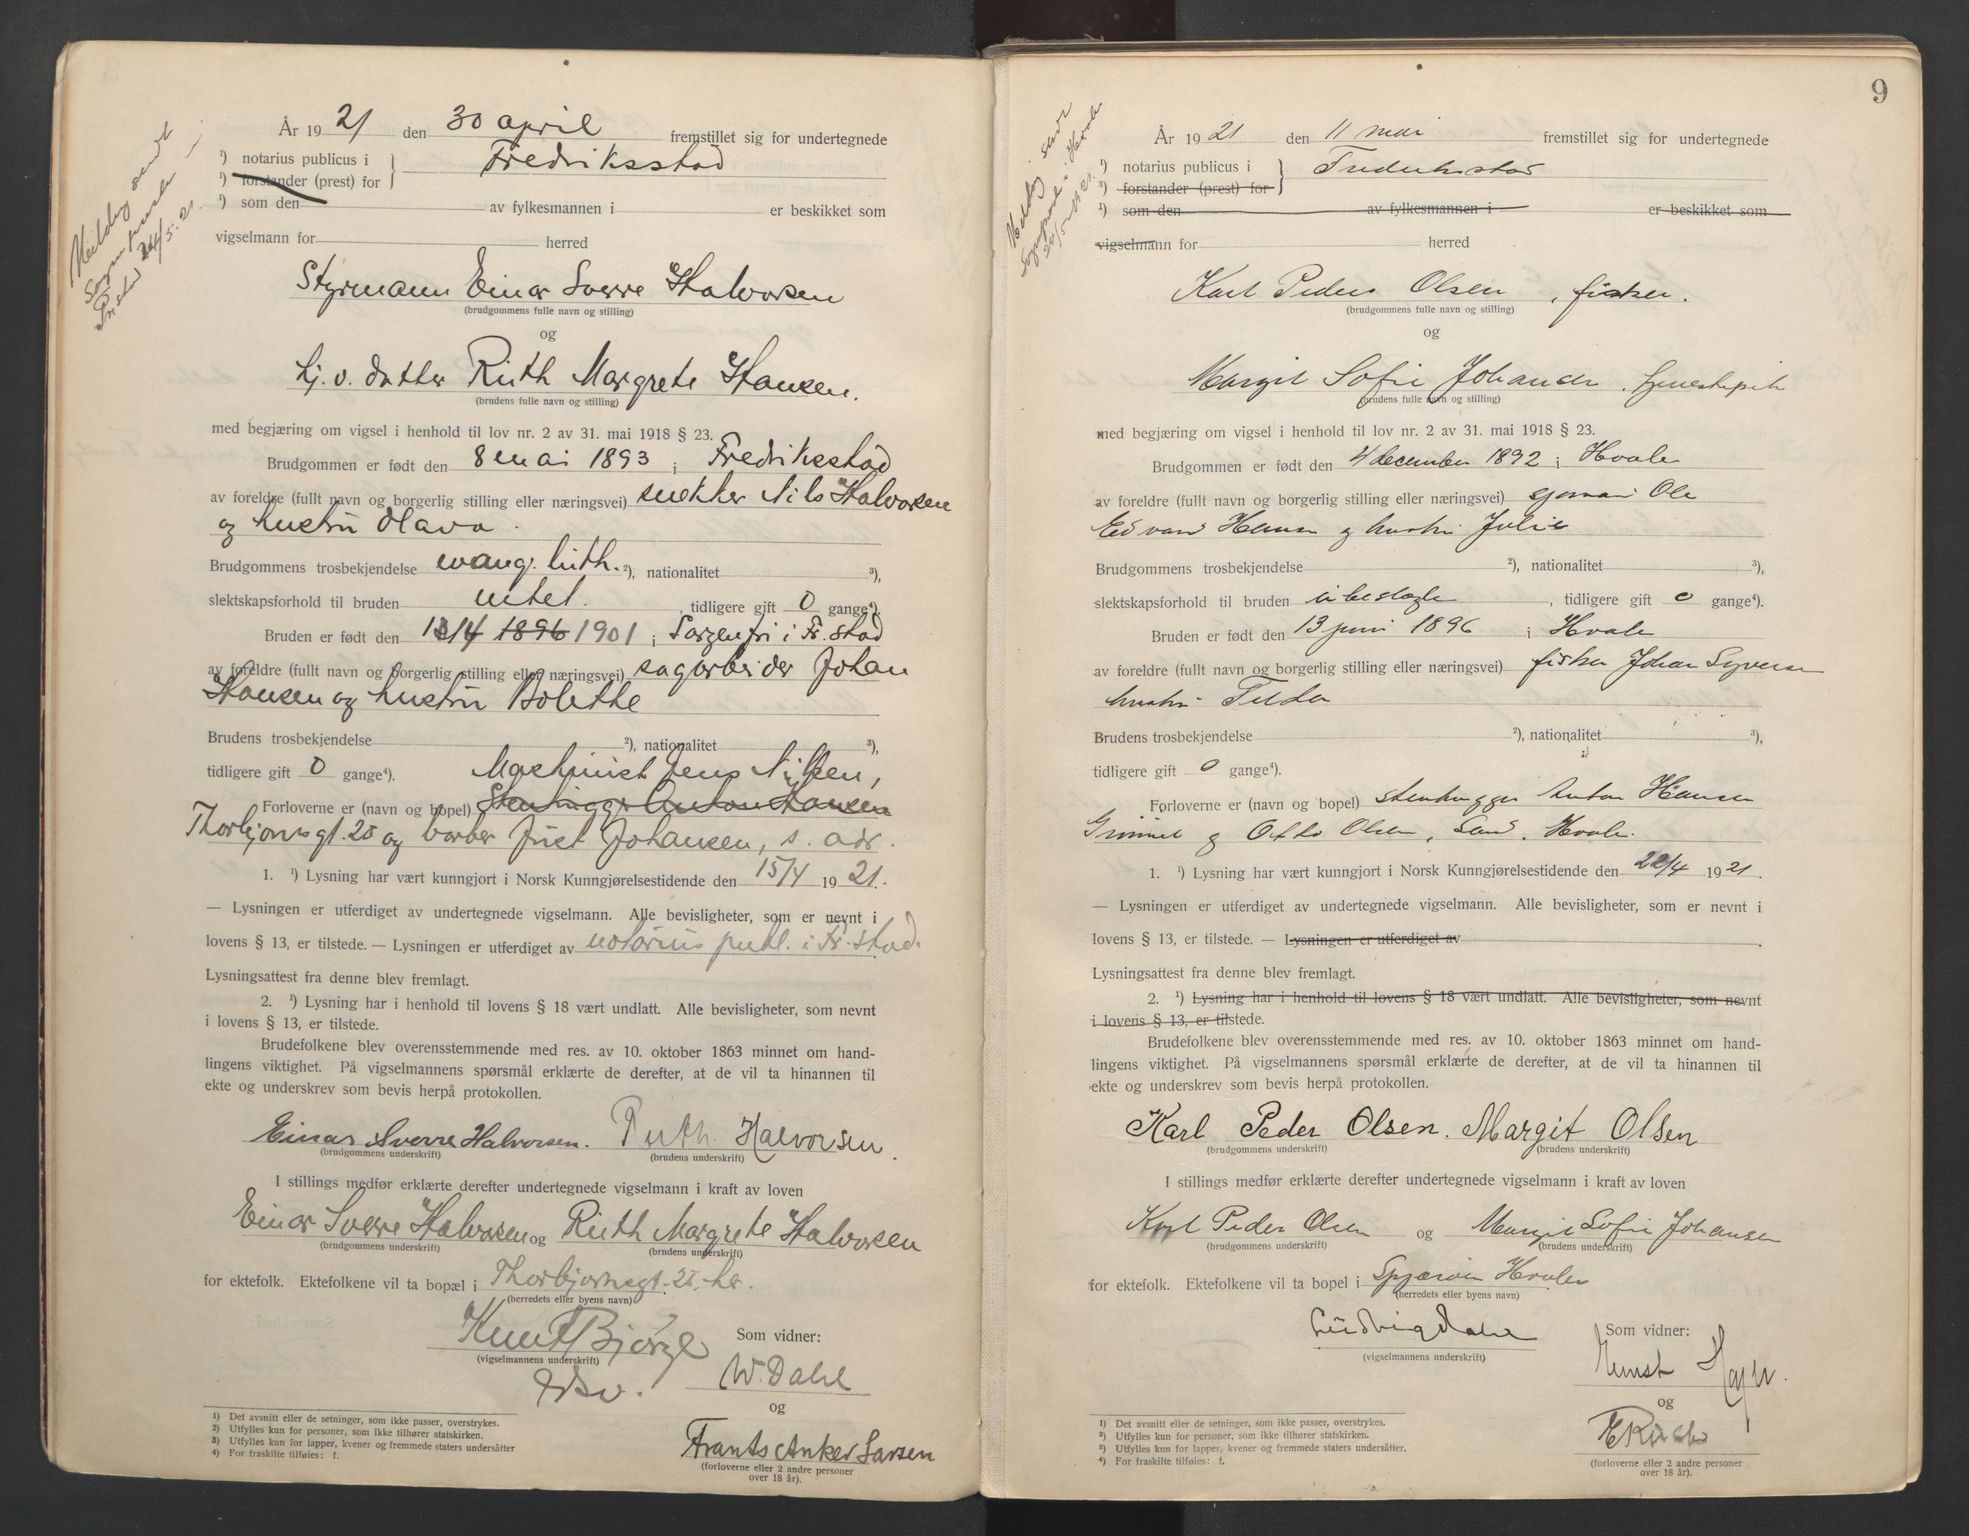 Melding sendt
År 1921 den 30 april fremstillet sig for undertegnede
¹) notarius publicus i Fredriksstad
¹) forstander (prest) for
¹) som den av fylkesmannen i er beskikket som
vigselmann for herred
Styrmann Einar Sverre Halvorsen
(brudgommens fulle navn og stilling)
og
hj. v. datter Ruth Margrete Hansen.
(brudens fulle navn og stilling)
med begjæring om vigsel i henhold til lov nr. 2 av 31. mai 1918 § 23.
Brudgommen er født den 8 mai 1893 i Fredriksstad
av foreldre (fullt navn og borgerlig stilling eller næringsvei) snekker Nils Halvorsen
og hustru Olava.
Brudgommens trosbekjendelse evang. luth. ²), nationalitet ³),
slektskapsforhold til bruden intet. , tidligere gift 0 gange⁴).
Bruden er født den 13/4 1896 1901 i Sorgenfri i Fr.stad
av foreldre (fullt navn og borgerlig stilling eller næringsvei) sagarbeider Johan
Hansen og hustru Bolette
Brudens trosbekjendelse ²), nationalitet ³),
tidligere gift 0 gange⁴). Maskinist Jens Nilsen,
Forloverne er (navn og bopel) Stenhugger Anton Hansen
Thorbjørnsgt. 25 og barber Just Johansen, s. adr.
1. ¹) Lysning har vært kunngjort i Norsk Kunngjørelsestidende den 15/4 1921.
— Lysningen er utferdiget av undertegnede vigselmann. Alle bevisligheter, som er nevnt i
lovens § 13, er tilstede. — Lysningen er utferdiget av notarius publ. i Fr.stad.
Lysningsattest fra denne blev fremlagt.
2. ¹) Lysning har i henhold til lovens § 18 vært undlatt. Alle bevisligheter, som nevnt
i lovens § 13, er tilstede.
Brudefolkene blev overensstemmende med res. av 10. oktober 1863 minnet om hand-
lingens viktighet. På vigselmannens spørsmål erklærte de derefter, at de vil ta hinannen til
ekte og underskrev som bevis herpå protokollen.
Einar Sverre Halvorsen. Ruth Halvorsen.
(brudgommens underskrift) (brudens underskrift)
I stillings medfør erklærte derefter undertegnede vigselmann i kraft av loven
Einar Sverre Halvorsen og Ruth Margrete Halvorsen
(brudgommens underskrift) (brudens underskrift)
for ektefolk. Ektefolkene vil ta bopæl i Thorbjørnsgt. 25. her.
(herredets eller byens navn)
Knut Bjørge
Som vidner:
(vigselmannens underskrift)
W. Dahl
og
Frants Anker Larsen
(forloverne eller 2 andre personer
over 18 år).
¹) Det avsnitt eller de setninger, som ikke passer, overstrykes.
²) Utfylles kun for personer, som ikke tilhører statskirken.
³) Utfylles kun for lapper, kvener og fremmede staters undersåtter
⁴) For fraskilte tilføies: f.
9
År 1921 den 11 mai fremstillet sig for undertegnede
¹) notarius publicus i Frederikstad
¹) forstander (prest) for
¹) som den av fylkesmannen i er beskikket som
vigselmann for herred
Karl Peder Olsen, fisker.
(brudgommens fulle navn og stilling)
og
Margit Sofie Johansen, tjenestepik
(brudens fulle navn og stilling)
med begjæring om vigsel i henhold til lov nr. 2 av 31. mai 1918 § 23.
Brudgommen er født den 4 december 1892 i Hvaler
av foreldre (fullt navn og borgerlig stilling eller næringsvei) sjømann Ole
Edvard Hansen og hustru Julie
Brudgommens trosbekjendelse ²), nationalitet ³),
slektskapsforhold til bruden ubeslægtet, tidligere gift 0 gange⁴).
Bruden er født den 13 juni 1896 i Hvaler
av foreldre (fullt navn og borgerlig stilling eller næringsvei) fisker Johan Syversen
hustru Tilda
Brudens trosbekjendelse ²), nationalitet ³),
tidligere gift 0 gange⁴).
Forloverne er (navn og bopel) stenhugger Anton Hansen
og Otto Olsen, Sand, Hvaler.
1. ¹) Lysning har vært kunngjort i Norsk Kunngjørelsestidende den 22/4 1921.
— Lysningen er utferdiget av undertegnede vigselmann. Alle bevisligheter, som er nevnt i
lovens § 13, er tilstede. — Lysningen er utferdiget av
Lysningsattest fra denne blev fremlagt.
2. ¹) Lysning har i henhold til lovens § 18 vært undlatt. Alle bevisligheter, som nevnt
i lovens § 13, er tilstede.
Brudefolkene blev overensstemmende med res. av 10. oktober 1863 minnet om hand-
lingens viktighet. På vigselmannens spørsmål erklærte de derefter, at de vil ta hinannen til
ekte og underskrev som bevis herpå protokollen.
Karl Peder Olsen. Margit Olsen
(brudgommens underskrift) (brudens underskrift)
I stillings medfør erklærte derefter undertegnede vigselmann i kraft av loven
Karl Peder Olsen og Margit Sofie Johansen
(brudgommens underskrift) (brudens underskrift)
for ektefolk. Ektefolkene vil ta bopel i Spjærøen Hvaler
(herredets eller byens navn)
Ludvig Dahl
Som vidner:
(vigselmannens underskrift)
og
(forloverne eller 2 andre personer
over 18 år).
¹) Det avsnitt eller de setninger, som ikke passer, overstrykes.
²) Utfylles kun for personer, som ikke tilhører statskirken.
³) Utfylles kun for lapper, kvener og fremmede staters undersåtter.
⁴) For fraskilte tilføies: f.